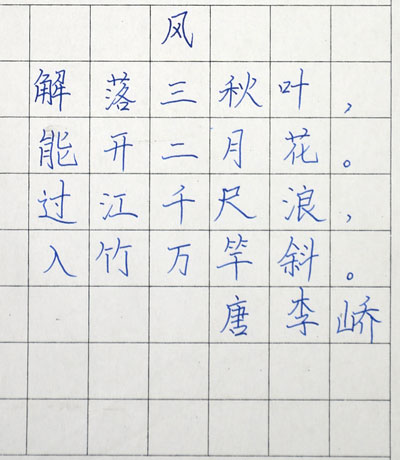 风
解落三秋叶，
能开二月花。
过江千尺浪，
入竹万竿斜。
唐李峤